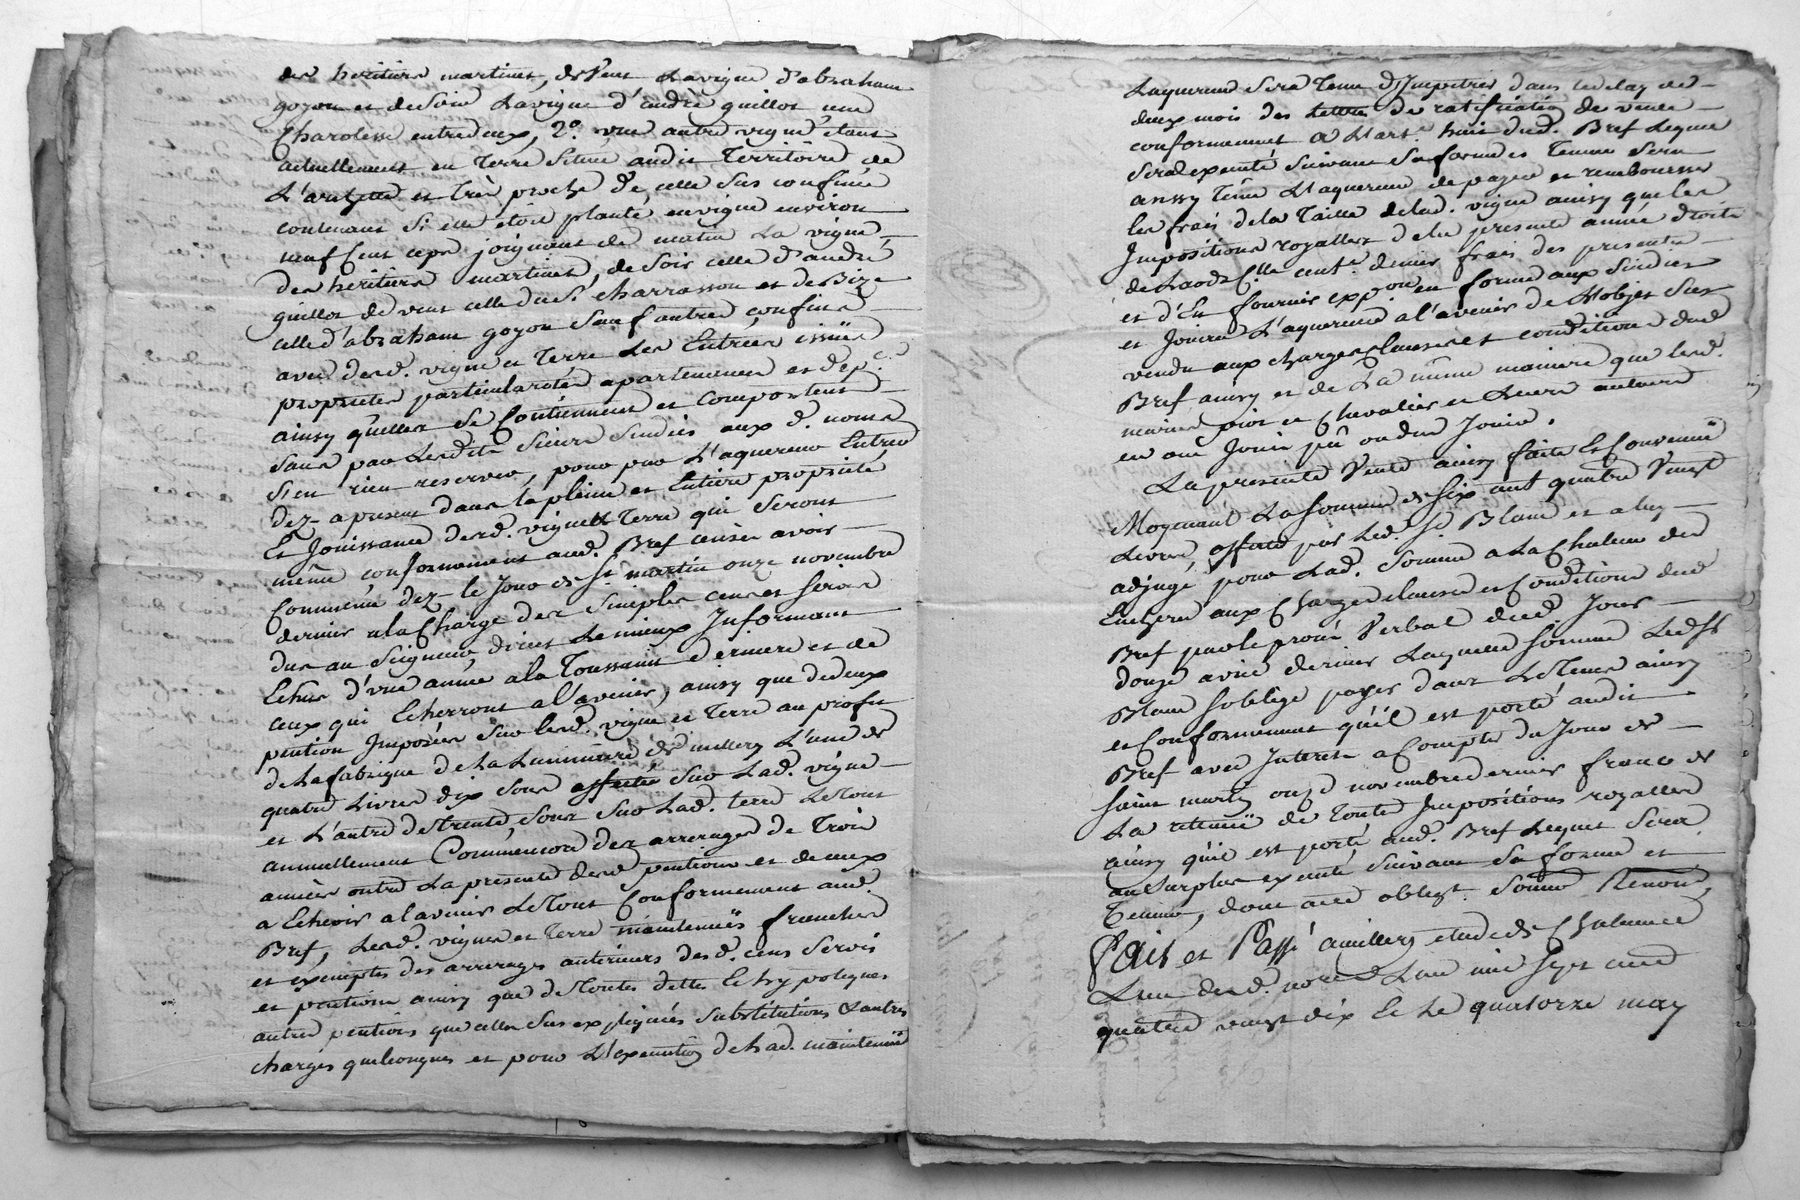 des heritiers martinet, de vent La vigne d'abraham
goyon et de Soir La vigne d'andré guillot une
Charolesse entredeux, 2°. une autre vigne étant
actuellement en Terre Située audit Territoire de
et très proche de celle Sus confinée
contenant Si elle étoit planté en vigne environ
neuf Cent ceps joignant de matin La vigne
des heritiers martinet, de Soir celle d'andré
guillot de vent celle du Sr. charrasson et de Bize
celle d'abraham goyon Sauf autres confins
avec desd. vigne et Terre Les Entrées issües
proprietés particularités apartenances et dep.ces
ainsy qu'elles Se Contiennent et Comportent
Sans par Lesdits Sieurs Sindics aux d. noms
S'en rien reserver, pour par L'aquereur Entrer
dez-apresent dans la pleine et Entiere proprieté
Et Jouissance desd. vigne et Terre qui Seront
même conformement aud. Bref censées avoir
Commencé dez-le Jour de St. martin onze novembre
dernier a la Charge des Simples cens et servis
dus au Seigneur direct Le mieux Informant
Echus d'une année a la Toussaint derniere et de
ceux qui Echerront a l'avenir, ainsy que de deux
pention Imposées Sur lesd. vigne et Terre au profit
de La fabrique de La Luminaire de millery L'une de
quatre Livres dix Sous affectée Sur Lad. vigne
et L'autre de trente Sous Sur Lad. terre Le Tout
annuellement Comme encore des arrerages de Trois
années outre La presente desd. pentions et de ceux
a Echeoir a l'avenir Le Tout Conformement aud.
Bref, Lesd. vignes et Terre maintenües franches
et exemptes des arrerages anterieurs desd. cens Servis
et pentions ainsy que de Toutes dettes Et hypoteques
autres pentions que celles Sus expliquées Substitutions & autres
charges quelconques et pour L'execution de Lad. maintenüe
Laquereur Sera Tenu d'Impetrer dans le delay de
deux mois des Lettres de ratification de vente
conformement a L'art.e huit dud. Bref Lequel
Sera executé Suivant Sa forme et Teneur Sera
aussy Tenu L'aquereur de payer et rembourser
les frais de la Taille de lad. vigne ainsy que les
Impositions royalles de la presente année droits
de Laods C.lle cent.e denier frais des presentes
et d'En fournir exp.on en forme aux Sindics
et Jouira L'aquereur a l'avenir de L'objet Sus
vendu aux charges clauses et conditions dud.
Bref ainsy et de La même maniere que lesd.
mariés piot et Chevalier et Leurs auteurs
en ont Joüi pû ou dû Joüir.
La presente Vente ainsy faite Et Convenüe
Moyenant La Somme de Six cent quatre Vingt
Livres offerte par Led. Sr. Blanc et a luy
adjugé pour Lad. Somme a La Chaleur des
Encheres aux Charges clauses et Conditions dud.
Bref par le procès Verbal dud. Jour
douze avril dernier Laquelle Somme Led. Sr.
Blanc S'oblige payer dans Le Terme ainsy
et Conformement qu'il est porté audit
Bref avec Interest a Compter du Jour de
Saint martin onze novembre dernier franc de
La retenüe de Toute Impositions royalles
ainsy qu'il est porté aud. Bref Lequel Sera
au Surplus executé Suivant Sa forme et
Teneur, dont acte obligt. Soumo. Renon.
Fait et Passé a millery etude de Chalance
L'un desd. no.res L'an mil Sept cent
quatre vingt dix Et Le quatorze may